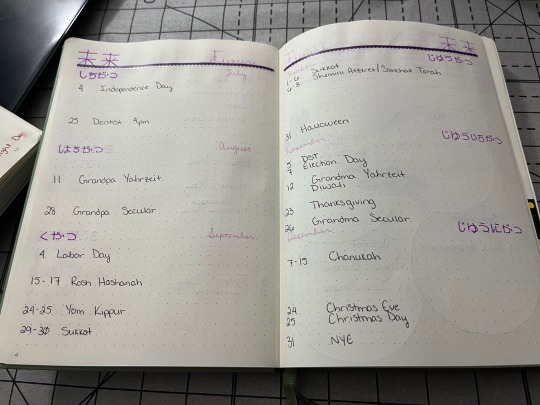 未来 Future
しちがつ July
4 Independence Day
25 Dentist 4pm
はちがつ August
11 Grandpa Yahrzeit
28 Grandpa Secular
くがつ September
4 Labor Day
15-17 Rosh Hashanah
24-25 Yom Kippur
29-30 Sukkot
未来
じゅうがつ
1-6 Sukkot
6-8 Shumini Atzeret/Simchat Torah
31 Halloween
November じゅういちがつ
5 DST
7 Election Day
12 Grandma Yahrzeit
Diwali
23 Thanksgiving
26 Grandma Secular
December じゅうにがつ
7-15 Chanukah
24 Christmas Eve
25 Christmas Day
31 NYE